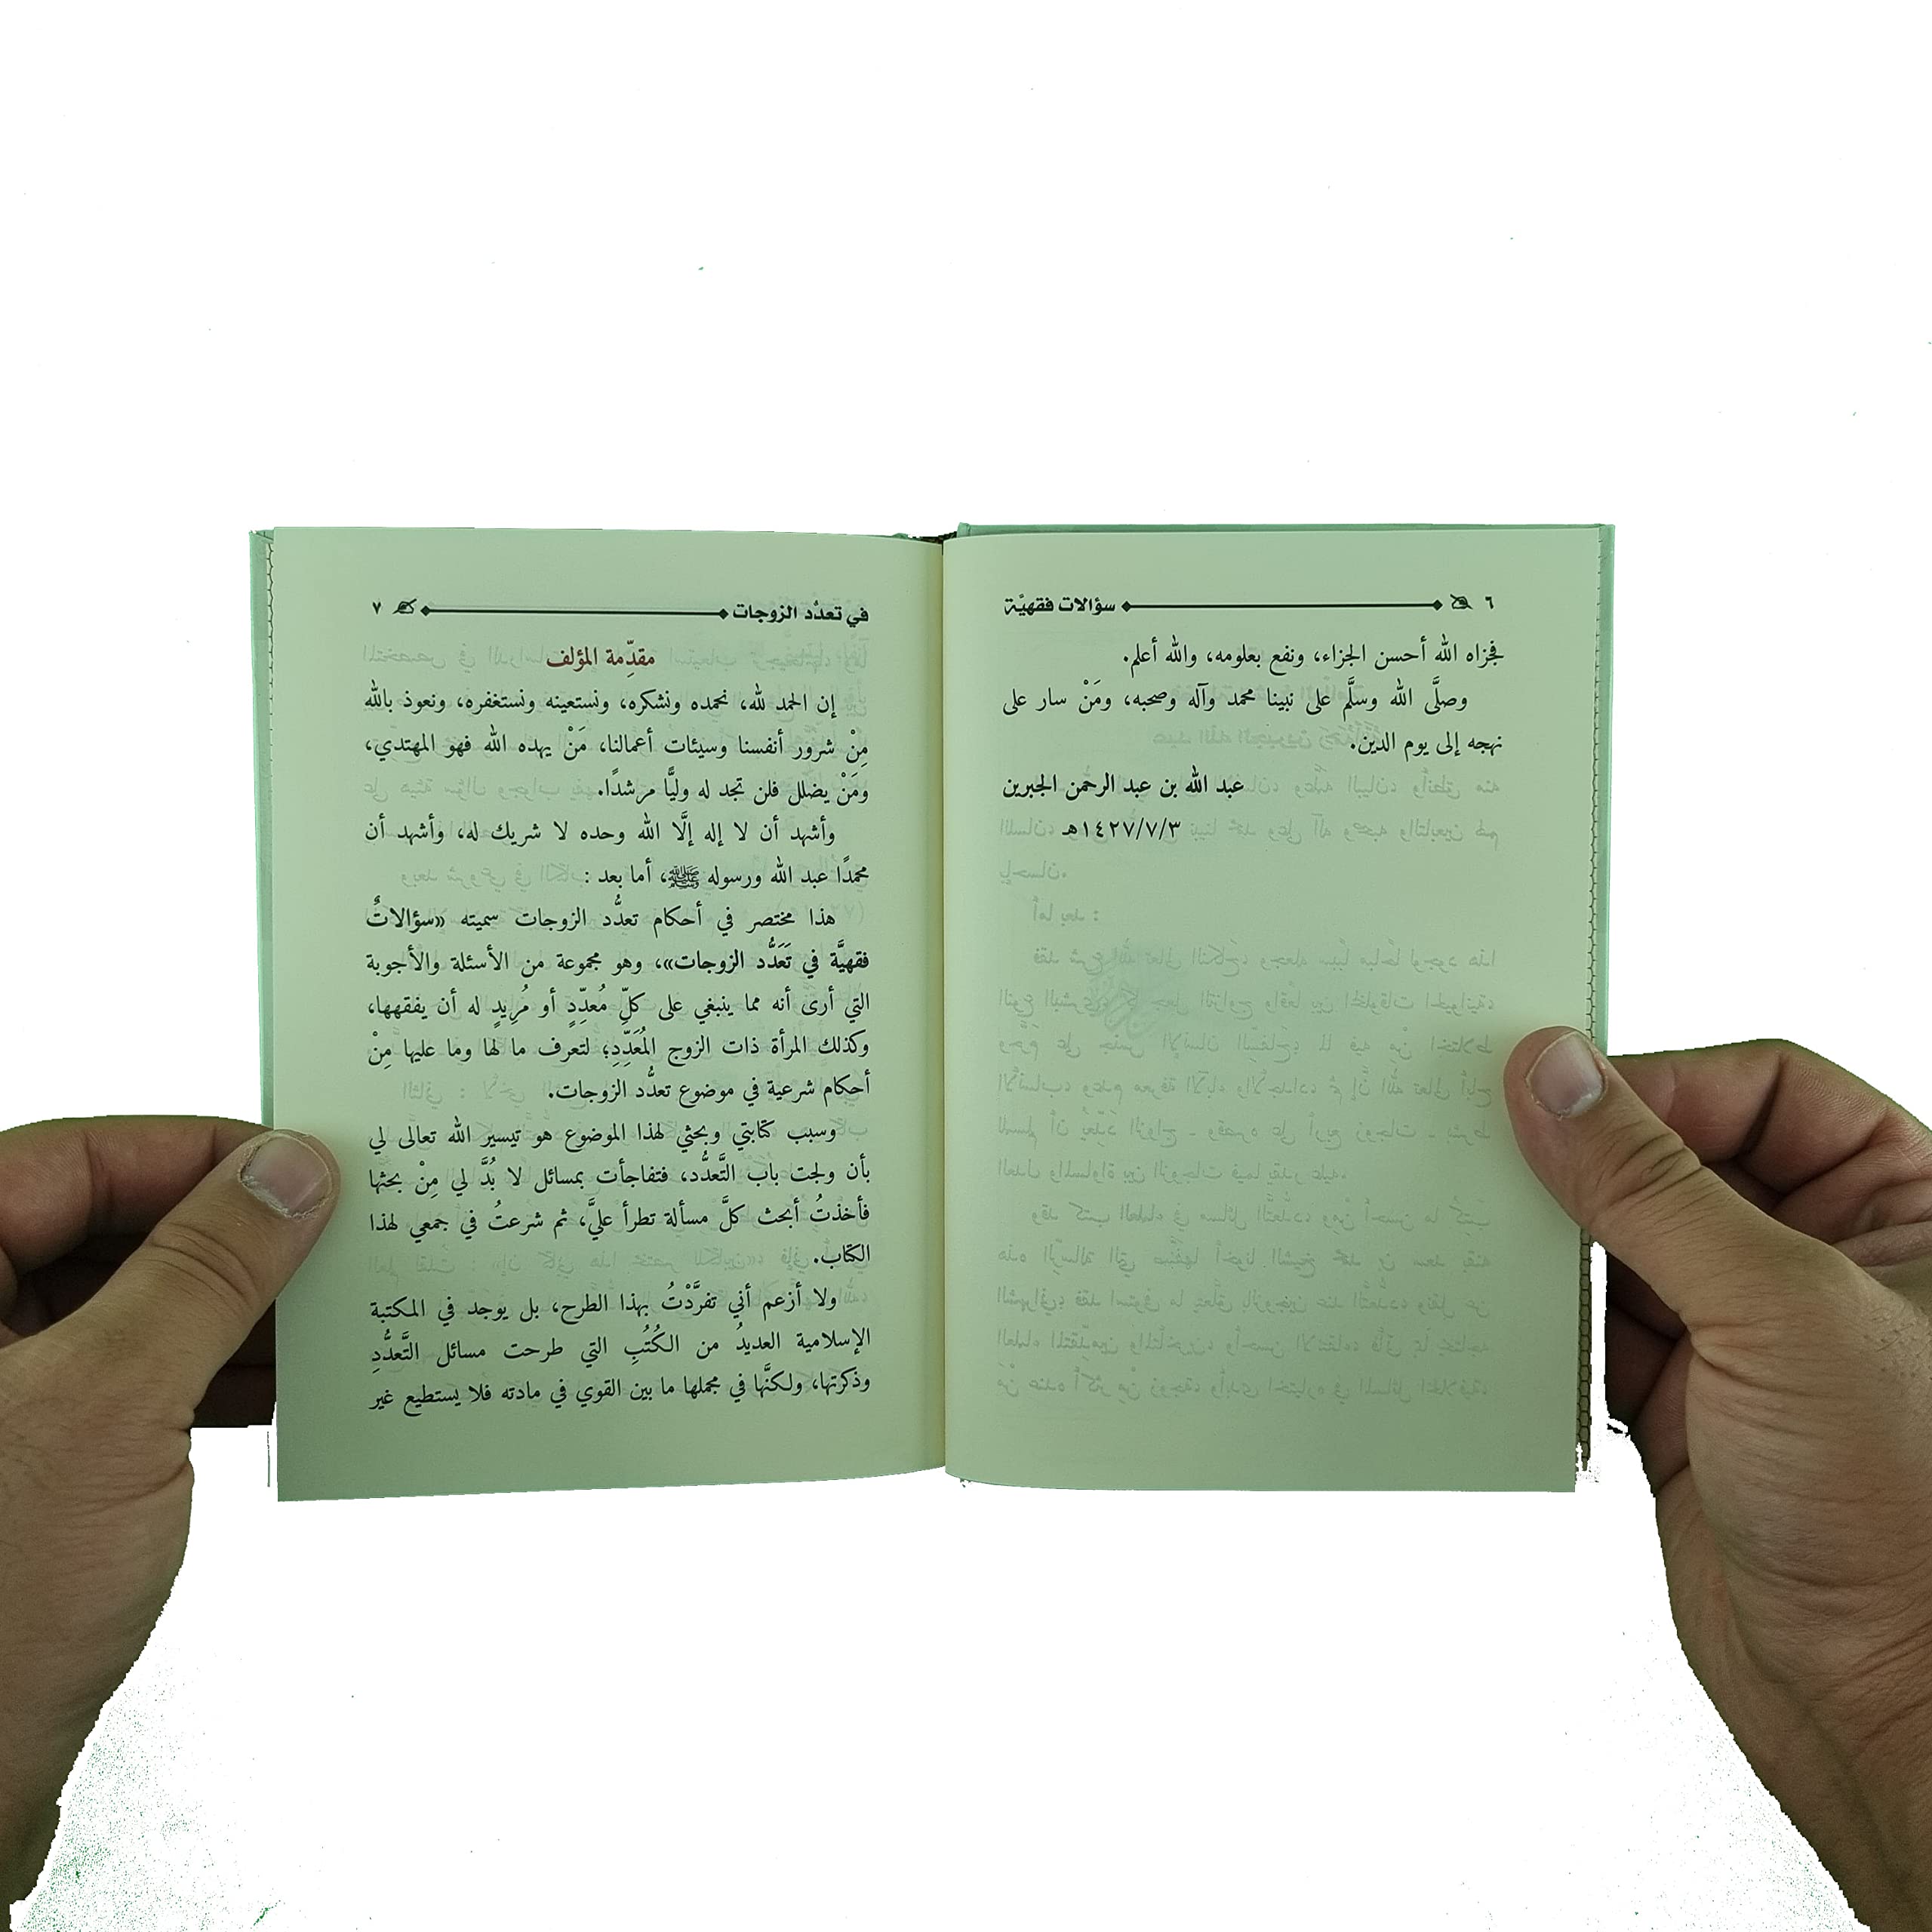 ٦ سؤالات فقهيَّة
فجزاه الله أحسن الجزاء، ونفع بعلومه، والله أعلم.
وصلَّى الله وسلَّم على نبينا محمد وآله وصحبه، ومَنْ سار على
نهجه إلى يوم الدين.
عبد الله بن عبد الرحمن الجبرين
١٤٢٧/٧/٣هـ
في تعدُّد الزوجات ٧
مقدِّمة المؤلف
إن الحمد لله، نحمده ونشكره، ونستعينه ونستغفره، ونعوذ بالله
مِنْ شرور أنفسنا وسيئات أعمالنا، مَنْ يهده الله فهو المهتدي،
ومَنْ يضلل فلن تجد له وليًّا مرشدًا.
وأشهد أن لا إله إلَّا الله وحده لا شريك له، وأشهد أن
محمدًا عبد الله ورسوله ﷺ، أما بعد :
هذا مختصر في أحكام تعدُّد الزوجات سميته «سؤالاتٌ
فقهيَّة في تَعَدُّد الزوجات»، وهو مجموعة من الأسئلة والأجوبة
التي أرى أنه مما ينبغي على كلِّ مُعدِّدٍ أو مُرِيدٍ له أن يفقهها،
وكذلك المرأة ذات الزوج المُعَدِّدِ؛ لتعرف ما لها وما عليها مِنْ
أحكام شرعية في موضوع تعدُّد الزوجات.
وسبب كتابتي وبحثي لهذا الموضوع هو تيسير الله تعالى لي
بأن ولجت باب التَّعدُّد، فتفاجأت بمسائل لا بُدَّ لي مِنْ بحثها
فأخذتُ أبحث كلَّ مسألة تطرأ عليَّ، ثم شرعتُ في جمعي لهذا
الكتاب.
ولا أزعم أني تفرَّدْتُ بهذا الطرح، بل يوجد في المكتبة
الإسلامية العديدُ من الكُتُبِ التي طرحت مسائل التَّعدُّدِ
وذكرتها، ولكنَّها في مجملها ما بين القوي في مادته فلا يستطيع غير